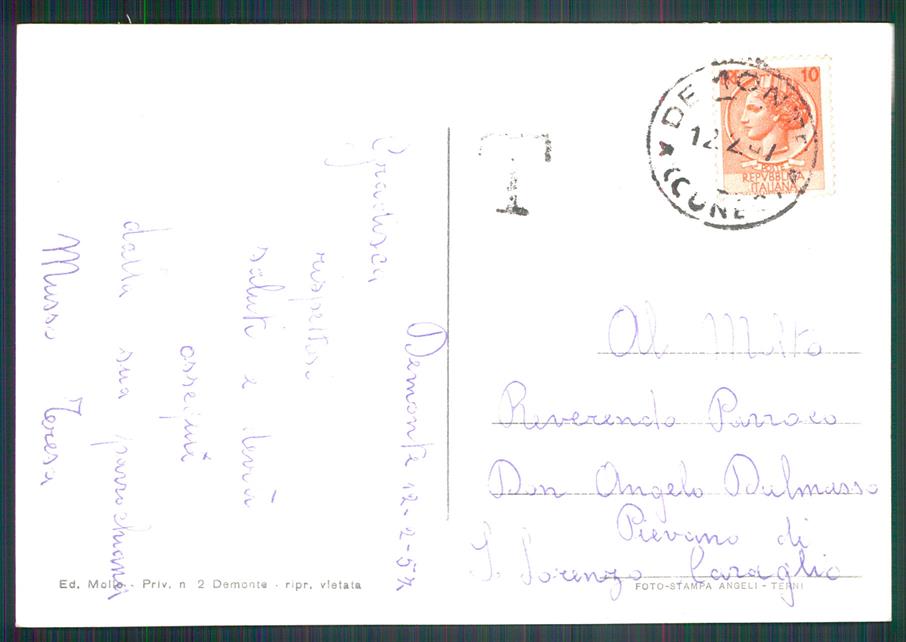 Demonte 12-2-57
Gradisca
rispettosi
saluti e
ossequi
dalla sua parrochiana
Musso Teresa
T
DEMONTE
(CUNEO)
12.2.57
10
POSTE
REPVBBLICA
ITALIANA
Al Molto
Reverendo Parroco
Don Angelo Dalmasso
Pievano di
S. Lorenzo Caraglio
Ed. Mollo - Priv. n 2 Demonte - ripr. vietata
FOTO-STAMPA ANGELI - TERNI